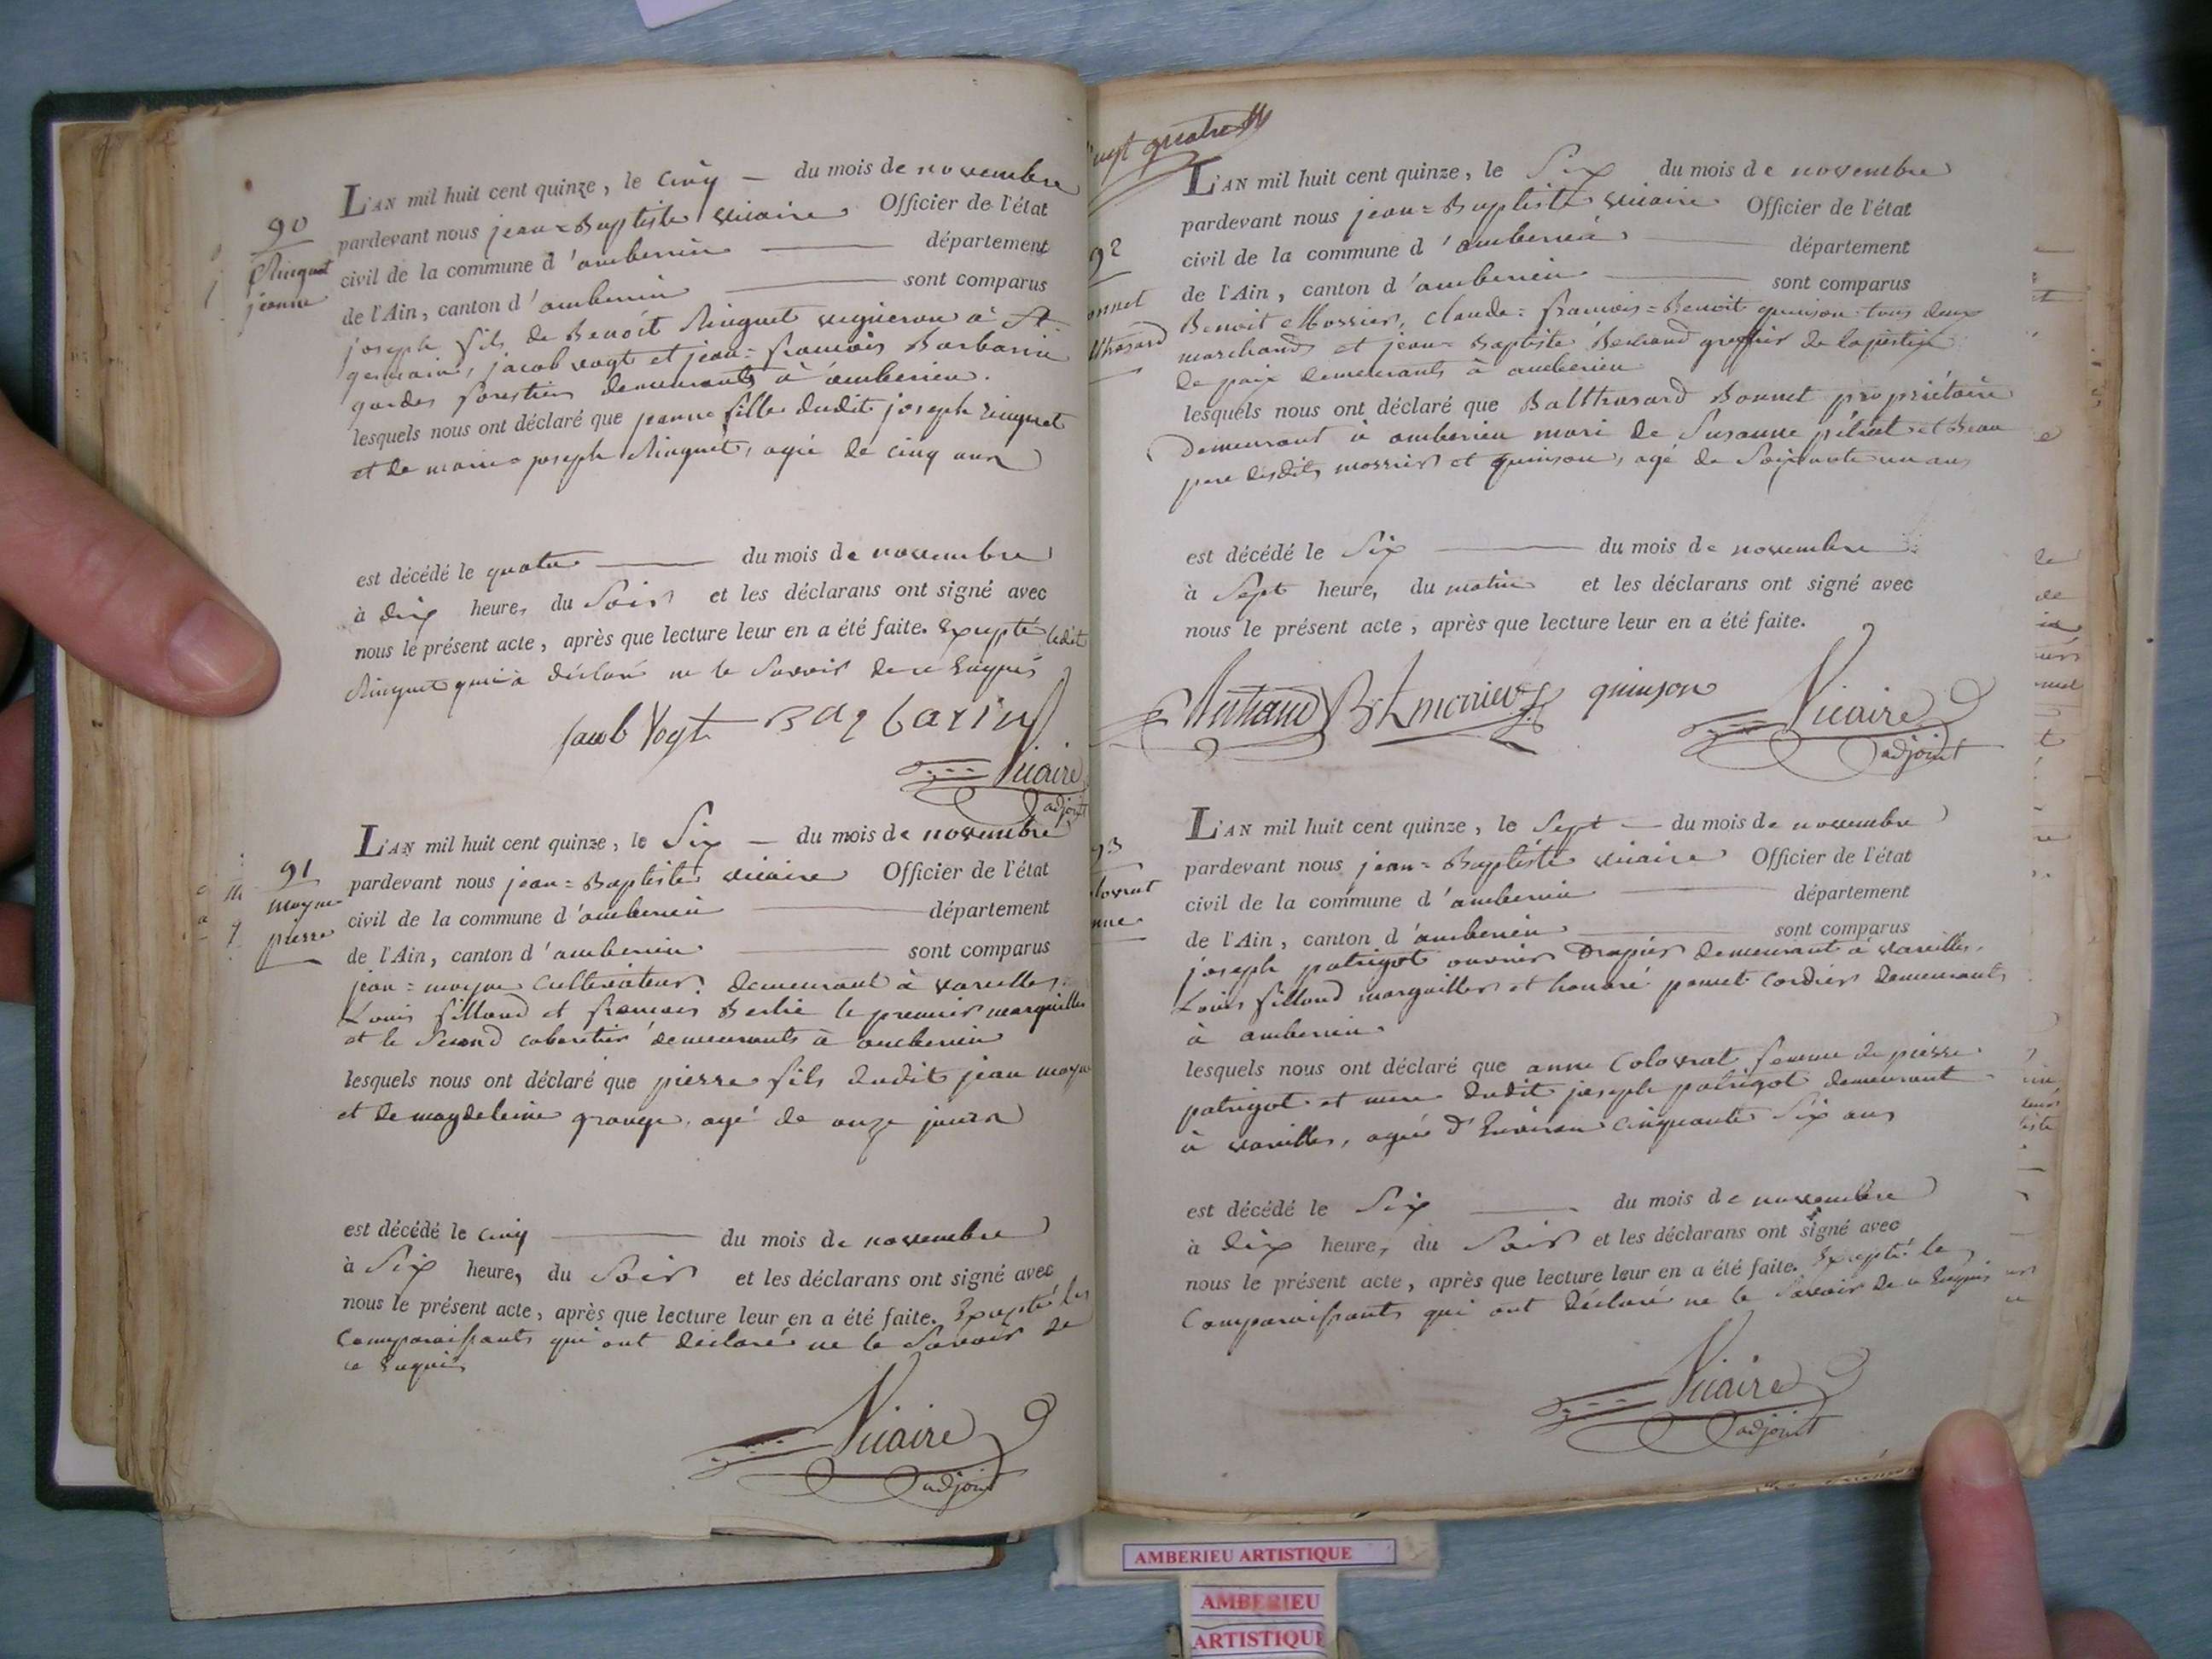 90
Ringuet
jeanne
L'AN mil huit cent quinze, le cinq — du mois de novembre
pardevant nous jean=Baptiste vicaire Officier de l'état
civil de la commune d'amberieu département
de l'Ain, canton d'amberieu sont comparus
joseph fils de Benoît Ringuet vigneron à St
germain, jacob vogt et jean=francois Barbarin
gardes forestiers demeurants à amberieu.
lesquels nous ont déclaré que jeanne fille dudit joseph Ringuet
et de marie=joseph Ringuet, agée de cinq ans
est décédé le quatre du mois de novembre
à dix heure, du Soir et les déclarans ont signé avec
nous le présent acte, après que lecture leur en a été faite. Excepté ledit
Ringuet qui a déclaré ne le Savoir de ce Enquis
Jacob Vogt Barbarin
Vicaire
adjoint
91
moyne
pierre
L'AN mil huit cent quinze, le Six — du mois de novembre
pardevant nous jean=Baptiste vicaire Officier de l'état
civil de la commune d'amberieu département
de l'Ain, canton d'amberieu sont comparus
jean=moyne cultivateur demeurant à vareilles,
Louis fillond et francois Berlie le premier marguiller
et le Second cabaretier demeurants à amberieu
lesquels nous ont déclaré que pierre fils dudit jean moyne
et de magdeleine grange, agé de onze jours
est décédé le cinq du mois de novembre
à Six heure, du Soir et les déclarans ont signé avec
nous le présent acte, après que lecture leur en a été faite. Excepté les
Comparaissants qui ont déclaré ne le Savoir de
ce Enquis
Vicaire
adjoint
vingt quatre
92
onnet
lthasard
L'AN mil huit cent quinze, le Six du mois de novembre
pardevant nous jean=Baptiste vicaire Officier de l'état
civil de la commune d'amberieu département
de l'Ain, canton d'amberieu sont comparus
Benoit Morrier, claude=francois=Benoit quinson tous deux
marchands et jean=Baptiste Bertrand greffier de la justice
de paix demeurants à amberieu
lesquels nous ont déclaré que Balthasard Bonnet propriétaire
demeurant à amberieu mari de Susanne et Beau
pere desdits morrier et quinson, agé de Soixante un ans
est décédé le Six du mois de novembre
à Sept heure, du matin et les déclarans ont signé avec
nous le présent acte, après que lecture leur en a été faite.
Bertrand Bt morrier quinson Vicaire
adjoint
93
lovrat
nne
L'AN mil huit cent quinze, le Sept — du mois de novembre
pardevant nous jean=Baptiste vicaire Officier de l'état
civil de la commune d'amberieu département
de l'Ain, canton d'amberieu sont comparus
joseph patrigot ouvrier Drapier demeurant à vareilles,
Louis fillond marguiller et honoré ponet Cordier demeurants
à amberieu
lesquels nous ont déclaré que anne Colovrat femme de pierre
patrigot et mere dudit joseph patrigot demeurant
à vareilles, agée d'Environ cinquante Six ans
est décédé le Six du mois de novembre
à dix heure, du Soir et les déclarans ont signé avec
nous le présent acte, après que lecture leur en a été faite. Excepté les
Comparaissants qui ont déclaré ne le Savoir de ce Enquis
Vicaire
adjoint
AMBERIEU ARTISTIQUE
AMBERIEU
ARTISTIQUE